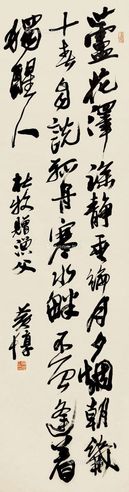 蘆花澤深静垂綸月夕烟朝幾
十春自説孤舟寒水畔不曾逢着
獨醒人
杜牧贈漁父
黄惇